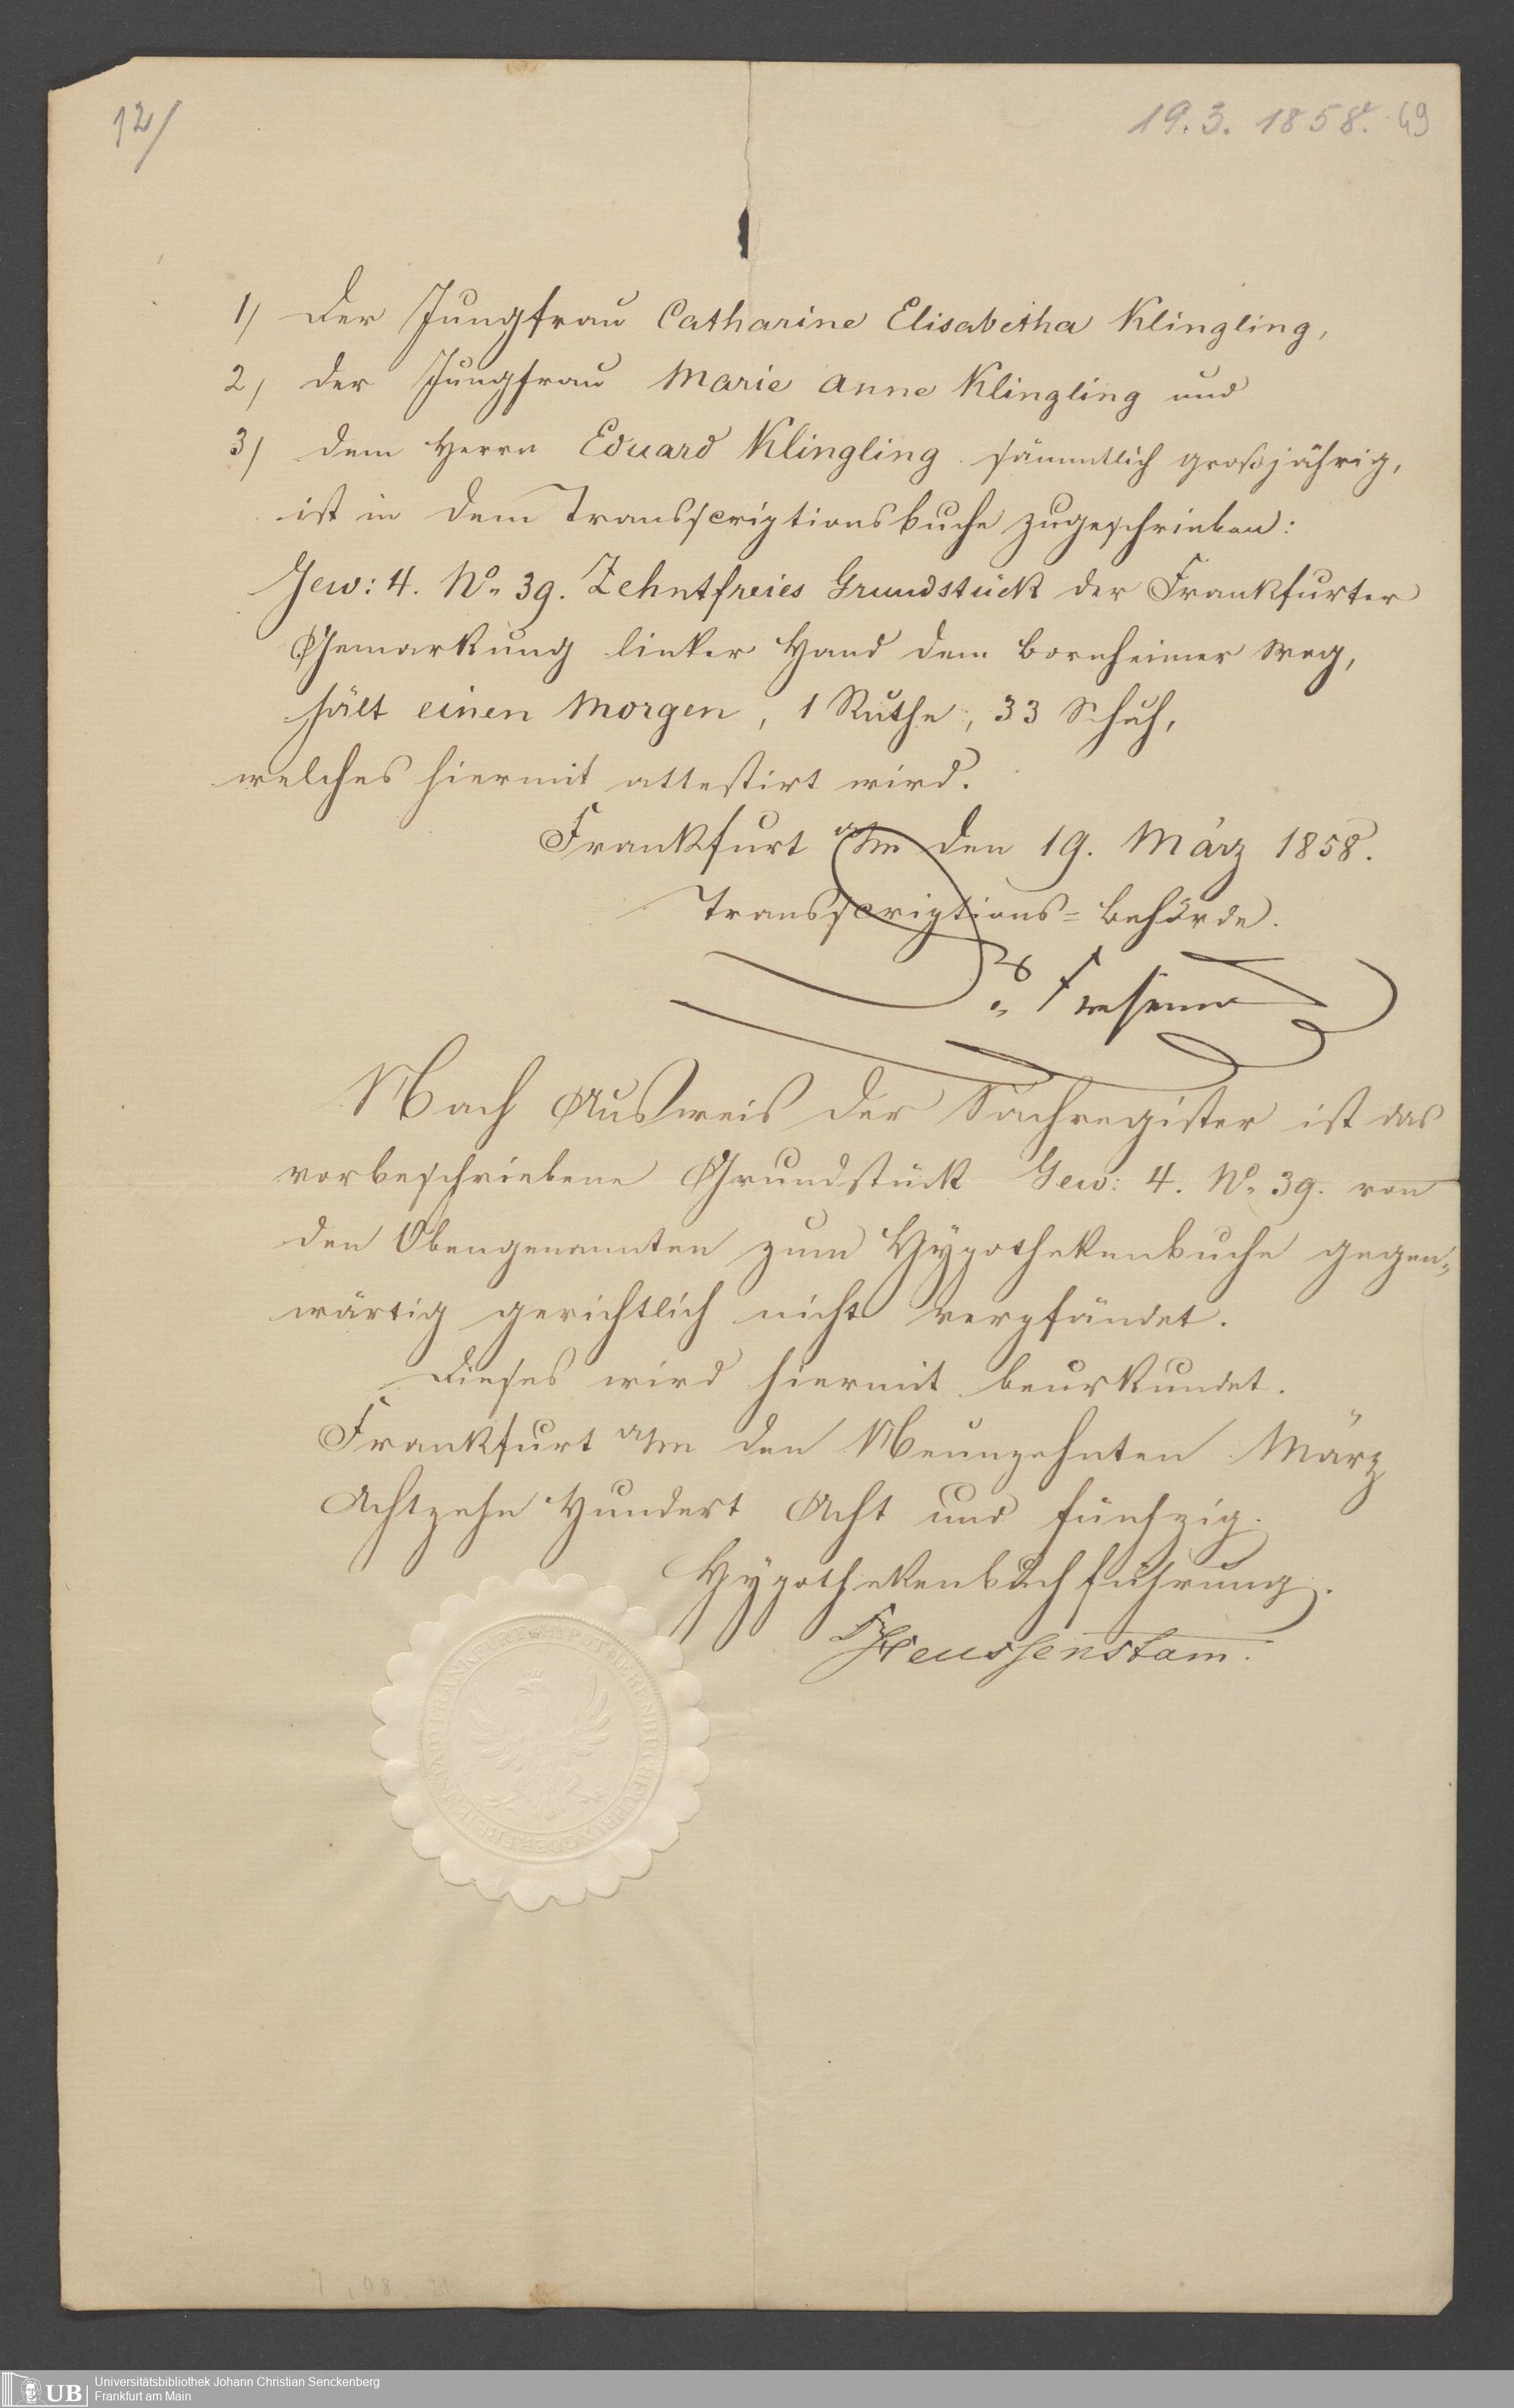 12/
19.3.1858. 49
1/ Der Jungfrau Catharine Elisabetha Klingling,
2/ der Jungfrau Marie Anne Klingling und
3/ dem Herrn Eduard Klingling sämmtlich großjährig,
ist in dem Transscriptionsbuche zugeschrieben:
Gew: 4. No. 39. Zehntfreies Grundstück der Frankfurter
Gemarkung linker Hand dem Bornheimer Weg,
hält einen Morgen, 1 Ruthe, 33 Schuh,
welches hiermit attestirt wird.
Frankfurt a/m den 19. März 1858.
Transscriptions=Behörde.
Nach Ausweis der Sachregister ist das
vorbeschriebene Grundstück Gew: 4. No. 39. von
den Obengenannten zum Hypothekenbuche gegen=
wärtig gerichtlich nicht verpfändet.
Dieses wird hiermit beurkundet.
Frankfurt a/m den Neunzehnten März
Achtzehn Hundert Acht und fünfzig.
Hypothekenbuchführung.
Heussenstam.
UB Universitätsbibliothek Johann Christian Senckenberg
Frankfurt am Main